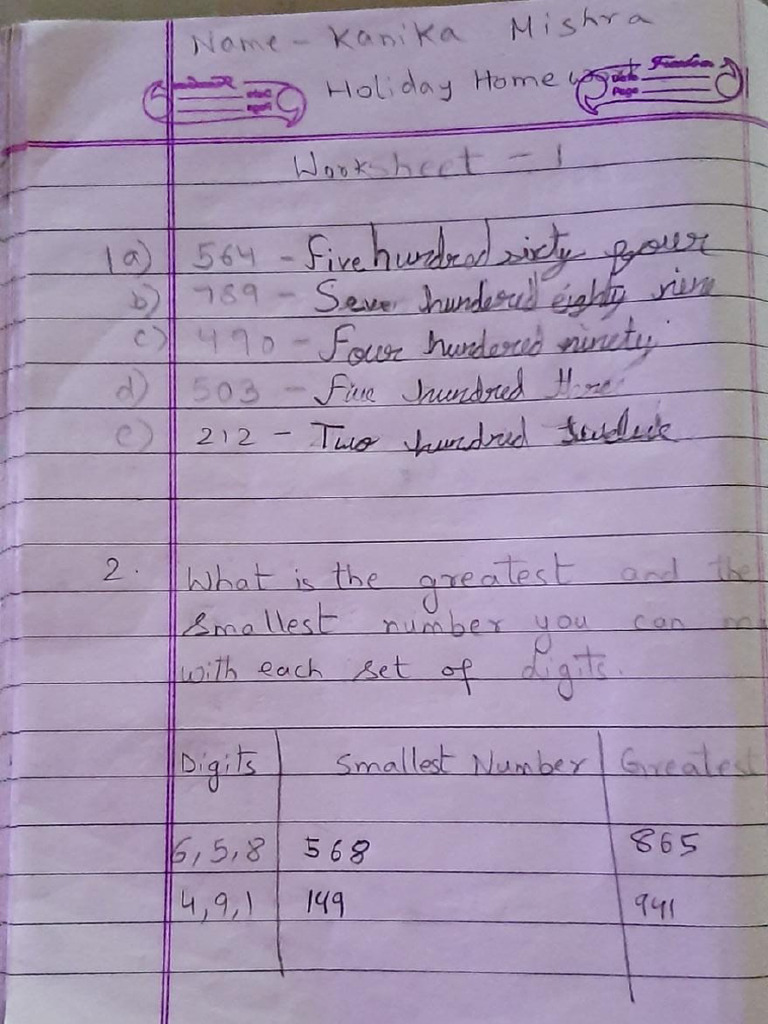 Name - Kanika Mishra
Holiday Home
Date
Page
Worksheet - 1
1 a) 564 - Five hundred sixty four
b) 789 - Seve hundered eighty nine
c) 490 - Four hundered ninety
d) 503 - five hundred three
e) 212 - Two hundred
2. What is the greatest and the
smallest number you can
with each set of digits.
Digits Smallest Number Greatest
6,5,8 568 865
4,9,1 149 941